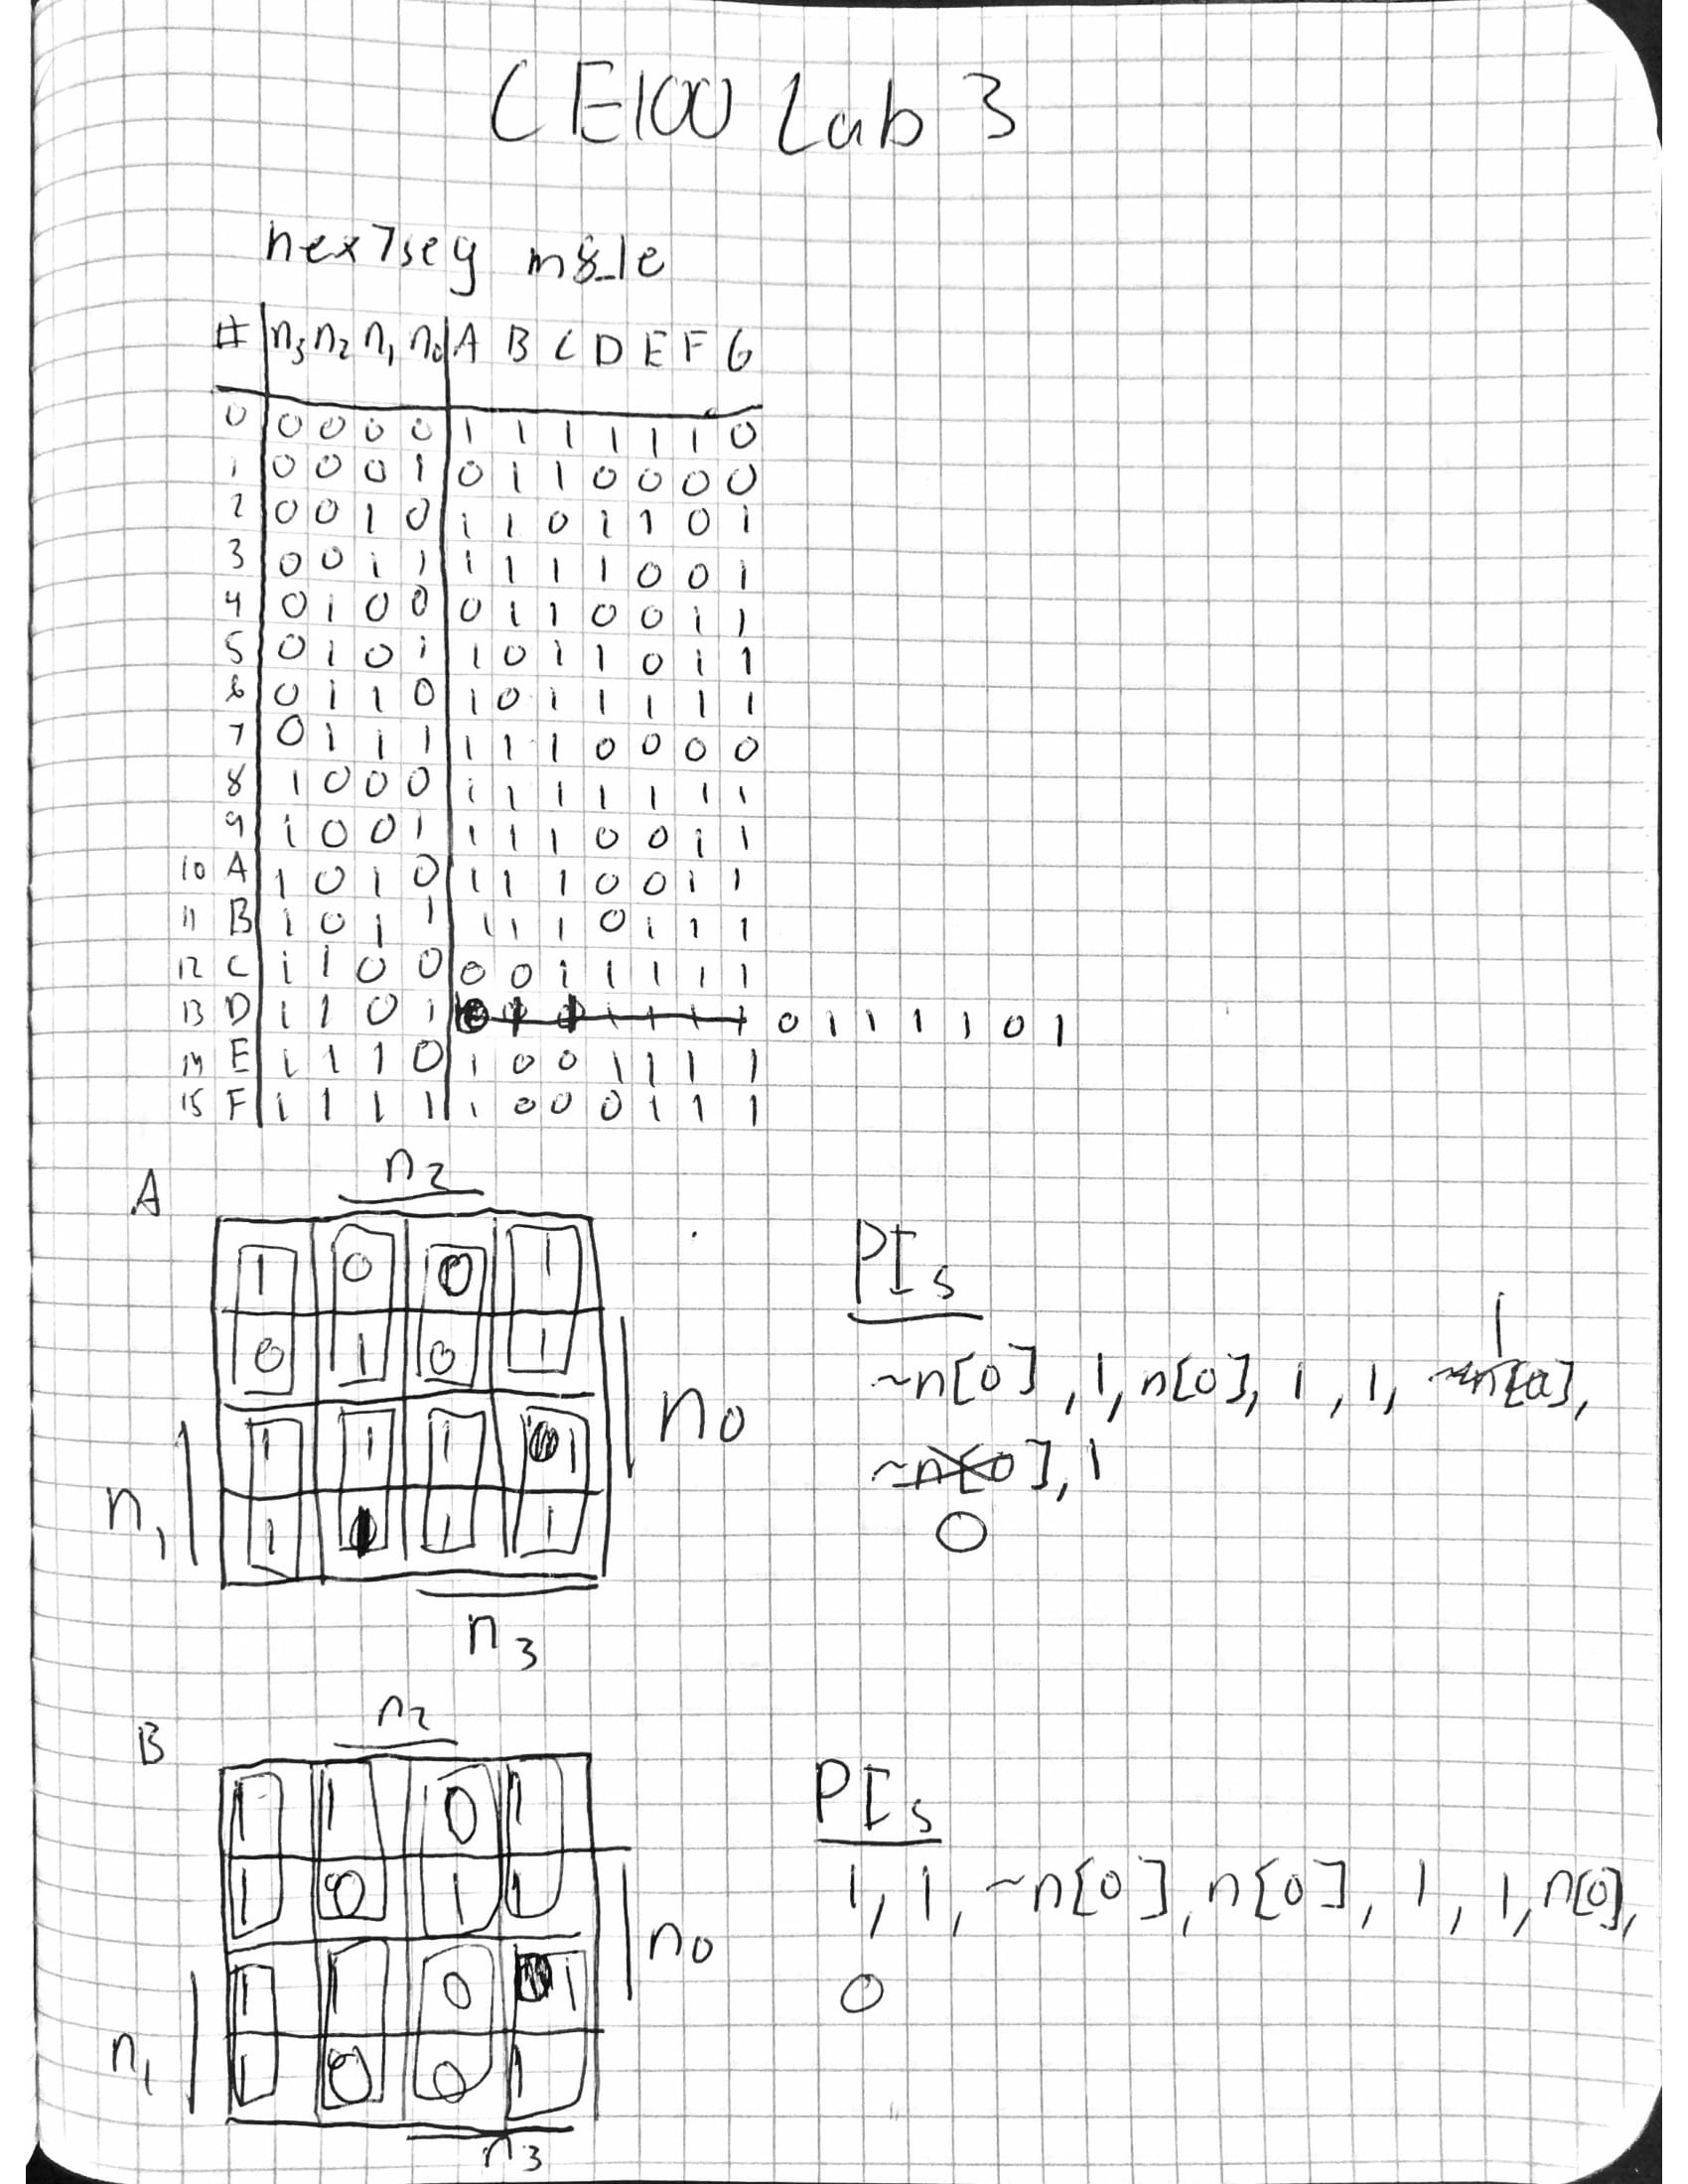 CE100 Lab 3
hex7seg m8_1e
# n3 n2 n1 n0 A B C D E F G
0 0 0 0 0 1 1 1 1 1 1 0
1 0 0 0 1 0 1 1 0 0 0 0
2 0 0 1 0 1 1 0 1 1 0 1
3 0 0 1 1 1 1 1 1 0 0 1
4 0 1 0 0 0 1 1 0 0 1 1
5 0 1 0 1 1 0 1 1 0 1 1
6 0 1 1 0 1 0 1 1 1 1 1
7 0 1 1 1 1 1 1 0 0 0 0
8 1 0 0 0 1 1 1 1 1 1 1
9 1 0 0 1 1 1 1 0 0 1 1
10 A 1 0 1 0 1 1 1 0 0 1 1
11 B 1 0 1 1 1 1 1 0 1 1 1
12 C 1 1 0 0 0 0 1 1 1 1 1
13 D 1 1 0 1 0 1 1 1 1 0 1
14 E 1 1 1 0 1 0 0 1 1 1 1
15 F 1 1 1 1 1 0 0 0 1 1 1
A
n2
1 0 0 1
0 1 0 1
n0
1 1 1 1
1 1 1 1
n1
n3
PIs
~n[0], 1, n[0], 1, 1, 1
~n[0], 1
0
B
n2
1 1 0 1
1 0 1 1
n0
1 1 0 1
1 0 0 1
n1
n3
PIs
1, 1, ~n[0], n[0], 1, 1, n[0],
0